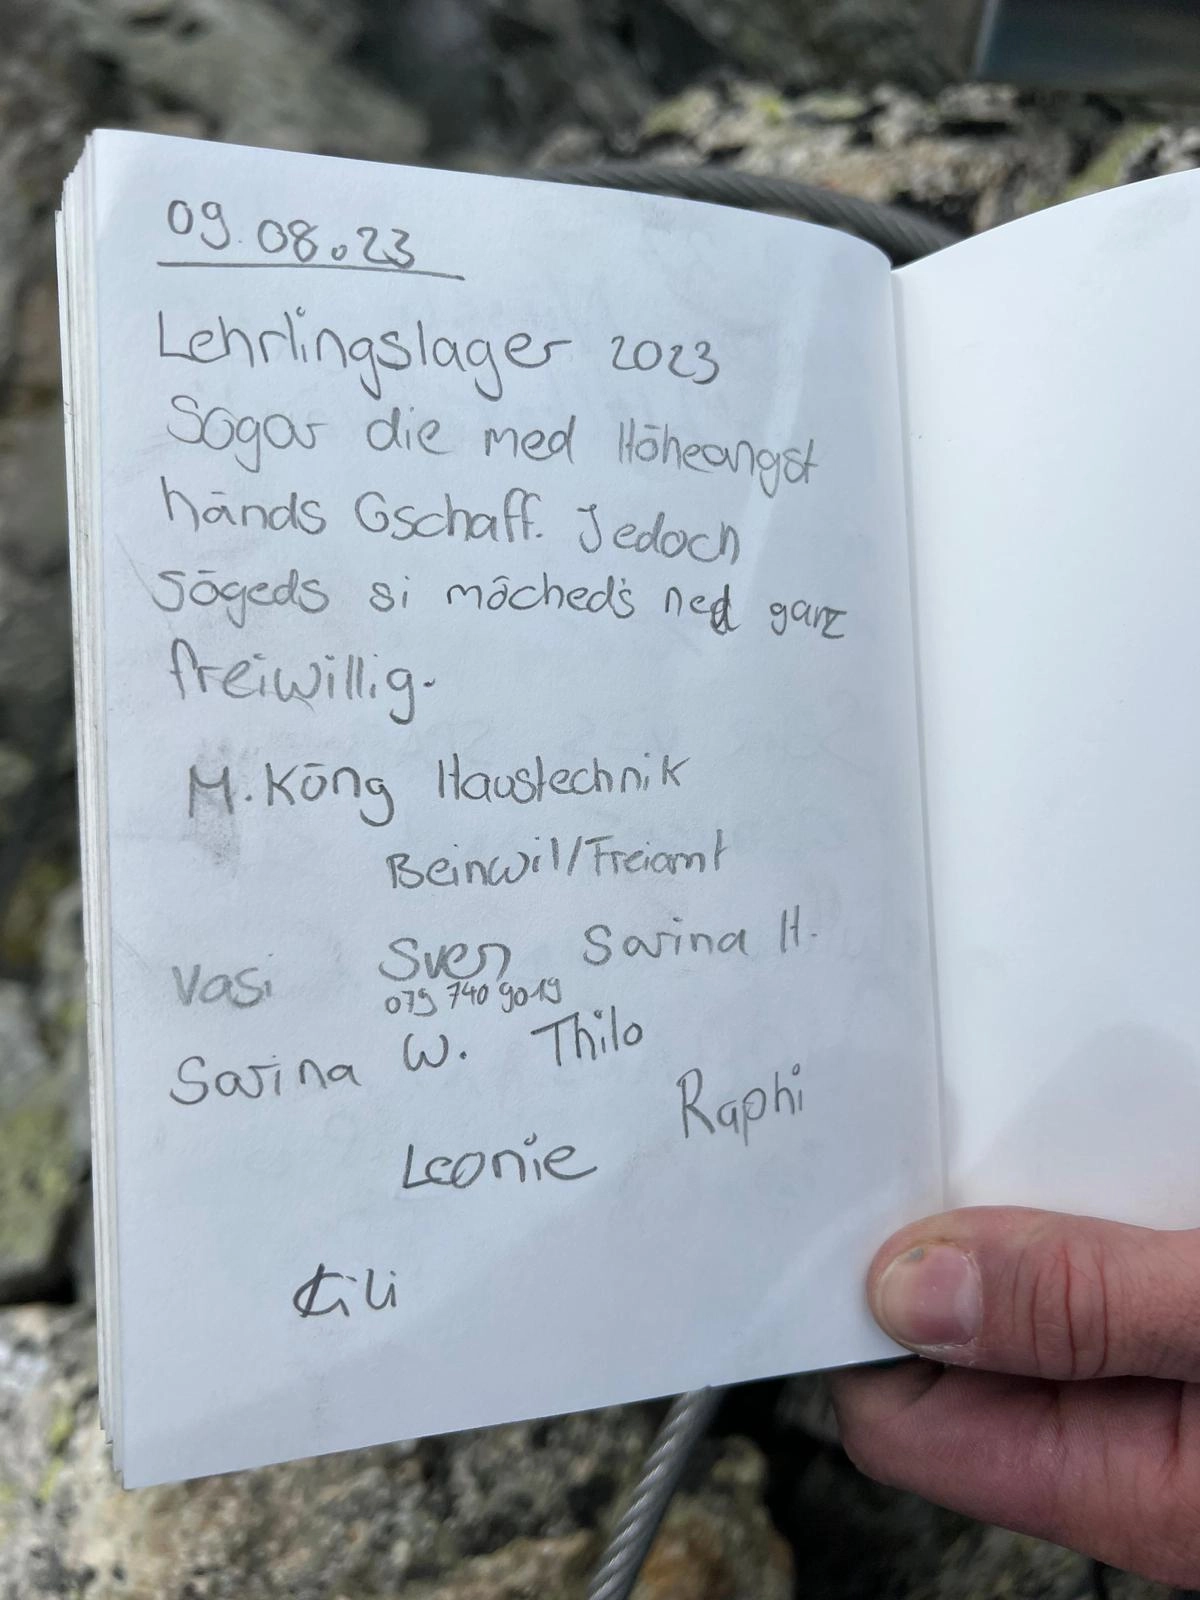 09.08.23
Lehrlingslager 2023
Sogar die med Höheangst
händs Gschaff. Jedoch
sägeds si mäched's ned ganz
freiwillig.
M. Köng Haustechnik
Beinwil/Freiamt
Vasi Sven Sarina H.
079 740 90 19
Sarina W. Thilo
Raphi
Leonie
Kili